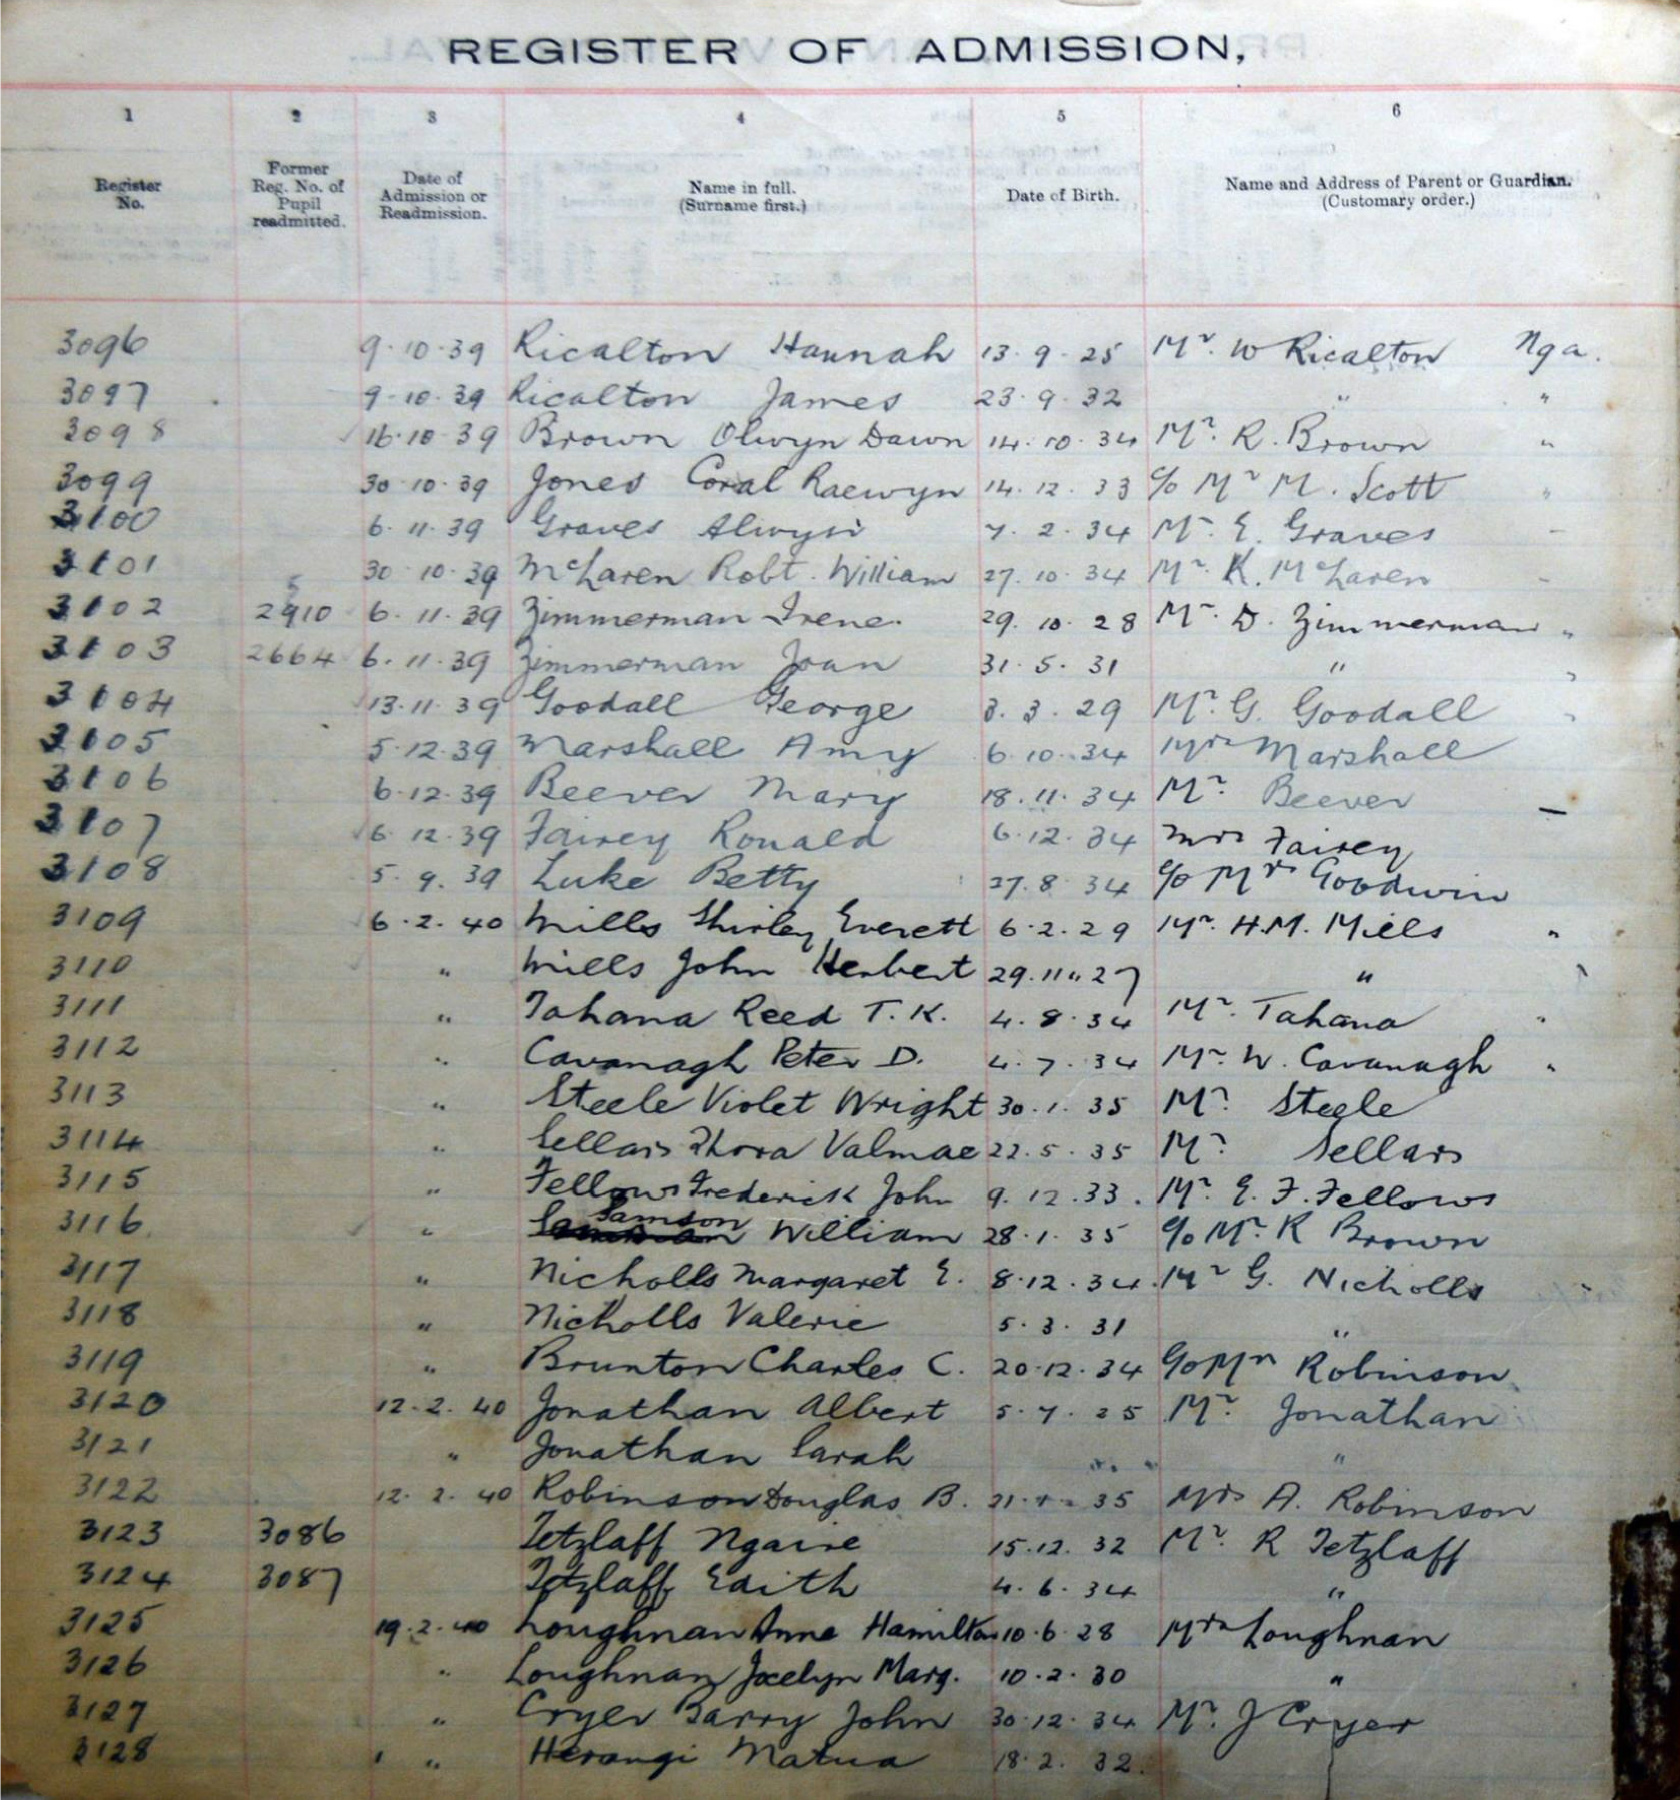 REGISTER OF ADMISSION,
1 2 3 4 5 6
Register No. Former Reg. No. of Pupil readmitted. Date of Admission or Readmission. Name in full. (Surname first.) Date of Birth. Name and Address of Parent or Guardian. (Customary order.)
3096 9·10·39 Ricalton Hannah 13·9·25 Mr. W Ricalton Nga.
3097 9·10·39 Ricalton James 23·9·32 " "
3098 16·10·39 Brown Olwyn Dawn 14·10·34 Mr. R. Brown "
3099 30·10·39 Jones Coral Raewyn 14·12·33 c/o Mr M. Scott "
3100 6·11·39 Graves Alwyn 7·2·34 Mr. E. Graves "
3101 30·10·39 McLaren Robt. William 27·10·34 Mr. K. McLaren "
3102 2910 6·11·39 Zimmerman Irene. 29·10·28 Mr. D. Zimmerman "
3103 2664 6·11·39 Zimmerman Joan 31·5·31 " "
3104 13·11·39 Goodall George 3·3·29 Mr. G. Goodall "
3105 5·12·39 Marshall Amy 6·10·34 Mrs Marshall
3106 6·12·39 Beever Mary 18·11·34 Mr. Beever
3107 6·12·39 Fairey Ronald 6·12·34 Mrs Fairey
3108 5·9·39 Luke Betty 27·8·34 c/o Mrs Goodwin
3109 6·2·40 Mills Shirley Everett 6·2·29 Mr. H.M. Mills "
3110 " Mills John Herbert 29·11·27 "
3111 " Tahana Reed T. K. 4·8·34 Mr. Tahana "
3112 " Cavanagh Peter D. 4·7·34 Mr. W. Cavanagh "
3113 " Steele Violet Wright 30·1·35 Mr. Steele
3114 " Sellars Thora Valmae 22·5·35 Mr. Sellars
3115 " Fellows Frederick John 9·12·33. Mr. E. F. Fellows
3116 " Samson William 28·1·35 c/o Mr. R Brown
3117 " Nicholls Margaret E. 8·12·34. Mr G. Nicholls
3118 " Nicholls Valerie 5·3·31 "
3119 " Brunton Charles C. 20·12·34 c/o Mrs Robinson
3120 12·2·40 Jonathan Albert 5·7·25 Mr. Jonathan
3121 " Jonathan Sarah "
3122 12·2·40 Robinson Douglas B. Mrs A. Robinson
3123 3086 Tetzlaff Ngaire 15·12·32 Mr. R Tetzlaff
3124 3087 Tetzlaff Edith 4·6·34 "
3125 19·2·40 Loughnan Anne Hamilton 10·6·28 Mrs Loughnan
3126 " Loughnan Jocelyn Marg. 10·2·30 "
3127 " Cryer Barry John 30·12·34 Mr. J Cryer
3128 " Herangi Matua 18·2·32.